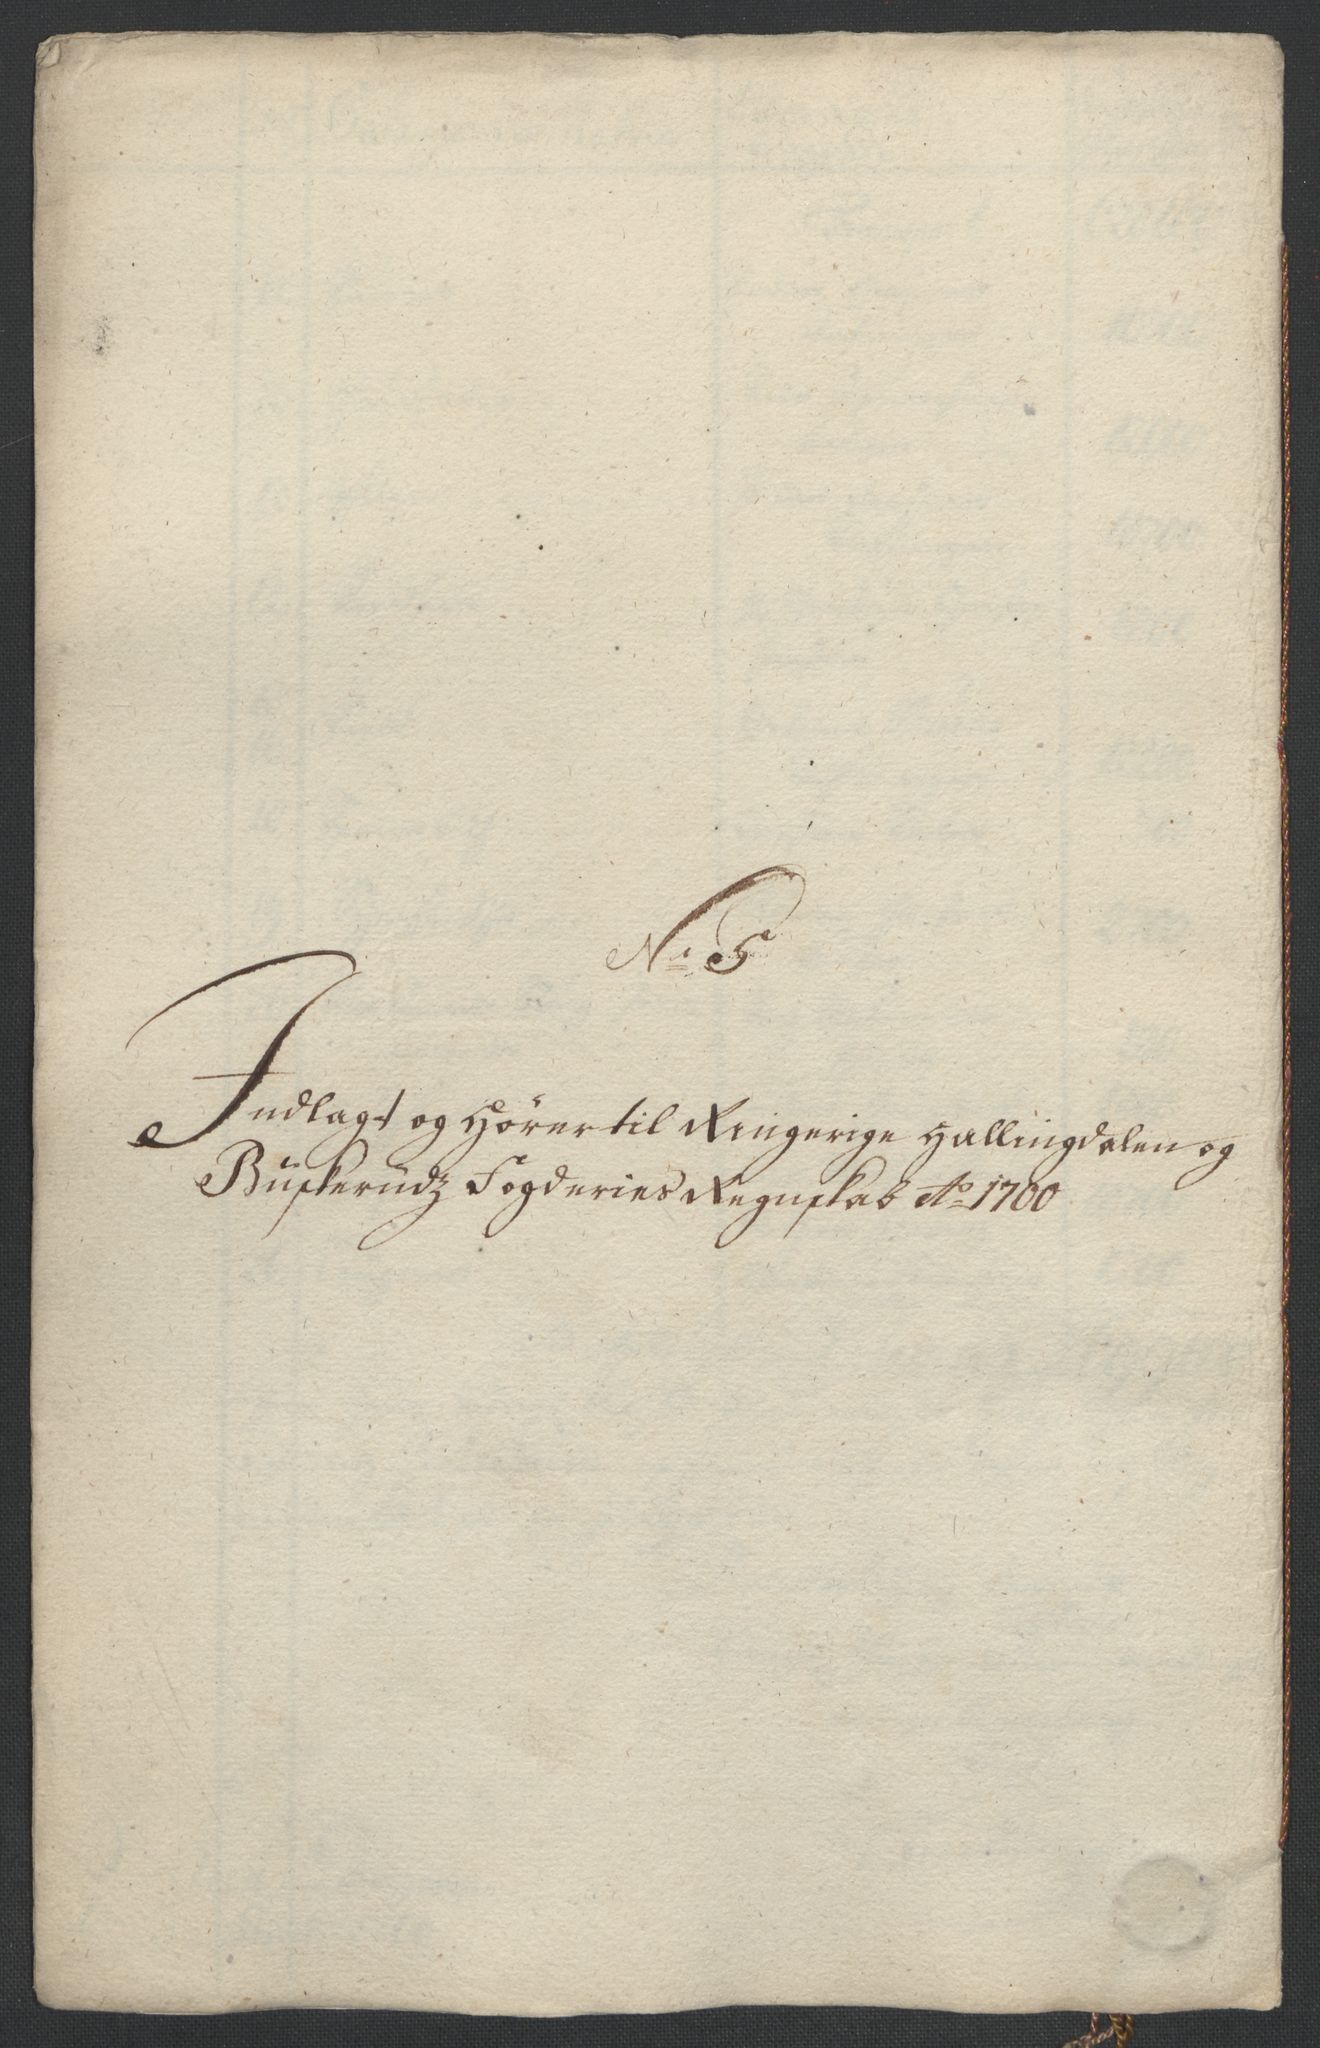 No 5
Indlagt og Hörer til Ringerige Hallingdalen og
Buskerüdz Fogderies Regnskab Ao 1700